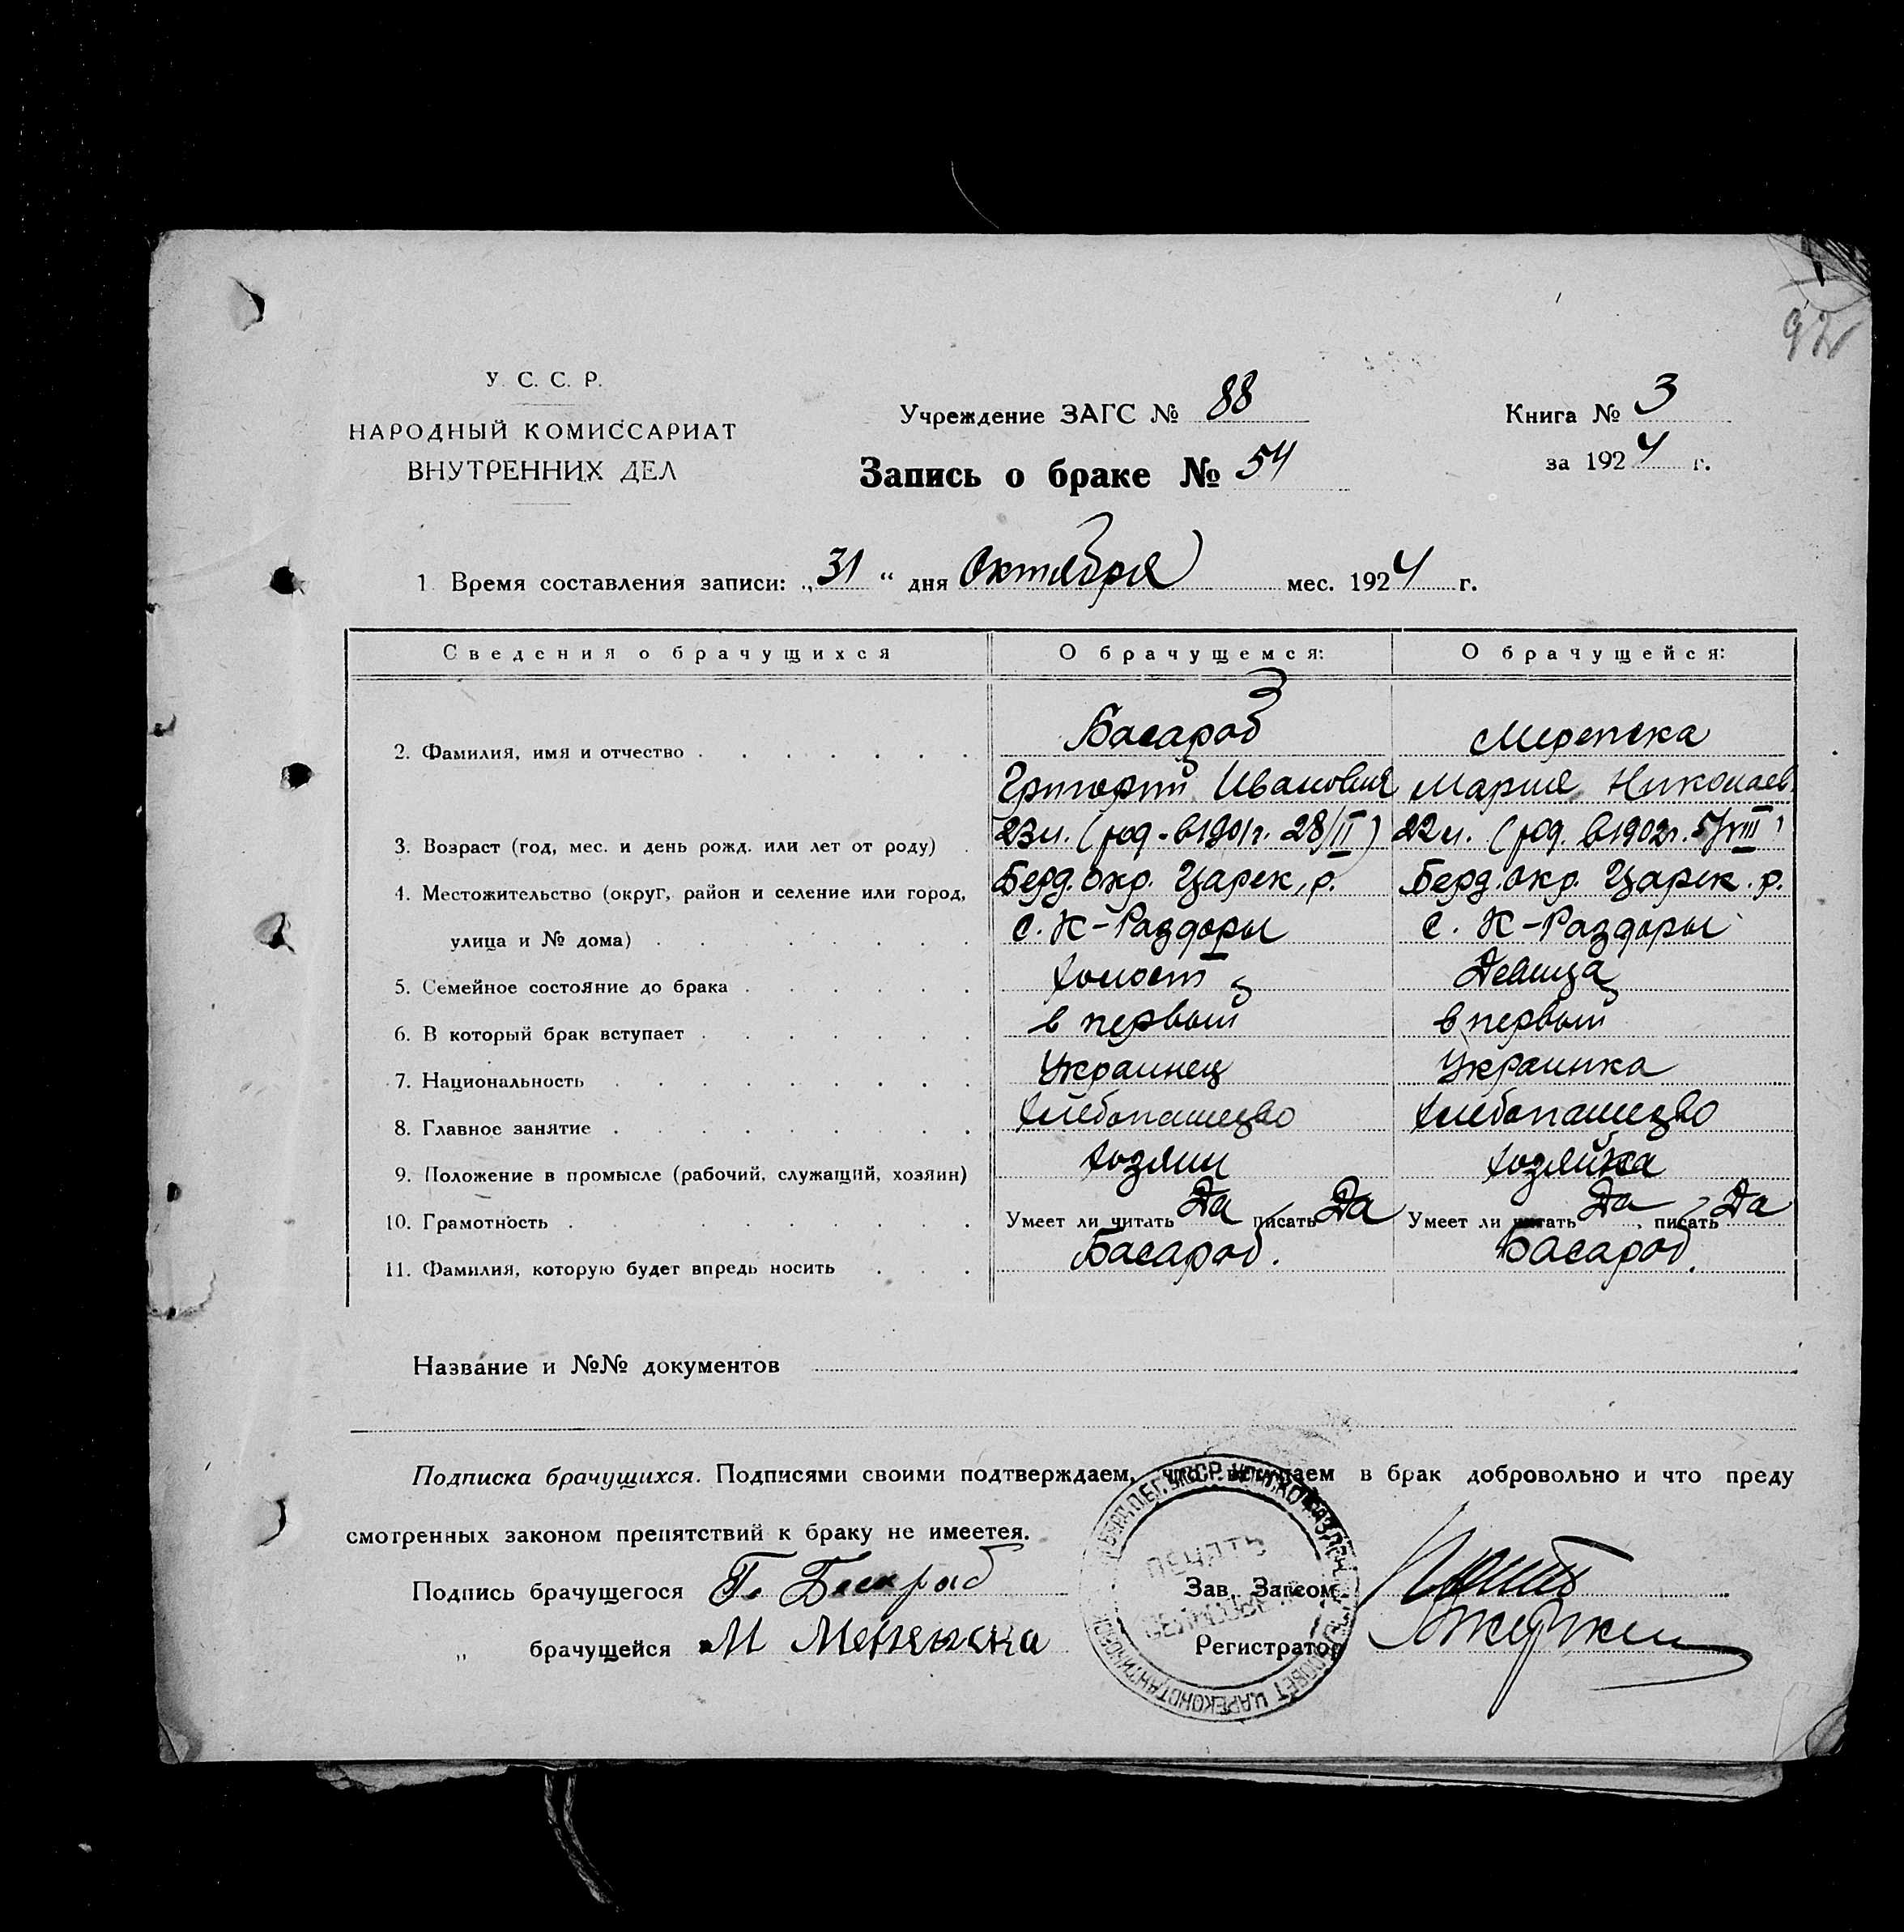 92
У. С. С. Р.
НАРОДНЫЙ КОМИССАРИАТ
ВНУТРЕННИХ ДЕЛ
Учреждение ЗАГС № 88
Запись о браке № 54
Книга № 3
за 1924 г.
1. Время составления записи: „31“ дня Октября мес. 1924 г.
Сведения о брачущихся О брачущемся: О брачущейся:
2. Фамилия, имя и отчество Басараб
Григорий Иванович Мария Николаев.
3. Возраст (год, мес. и день рожд. или лет от роду) 23 л. (род. в 1901 г. 28/II) 22 л. (род. в 1902 г. 5/VIII)
4. Местожительство (округ, район и селение или город, Берд. окр. Царек. р. Берд. окр. Царек. р.
улица и № дома) с. К-Раздоры с. К-Раздоры
5. Семейное состояние до брака холост Девица
6. В который брак вступает в первый в первый
7. Национальность Украинец Украинка
8. Главное занятие хлебопашество хлебопашество
9. Положение в промысле (рабочий, служащий, хозяин) хозяин хозяйка
10. Грамотность Умеет ли читать Да писать Да Умеет ли читать Да, писать Да
11. Фамилия, которую будет впредь носить Басараб. Басараб.
Название и №№ документов
Подписка брачущихся. Подписями своими подтверждаем, что вступаем в брак добровольно и что преду
смотренных законом препятствий к браку не имеетея.
Подпись брачущегося Г. Зав. Загсом
„ брачущейся М Регистратор
ПЕЧАТЬ